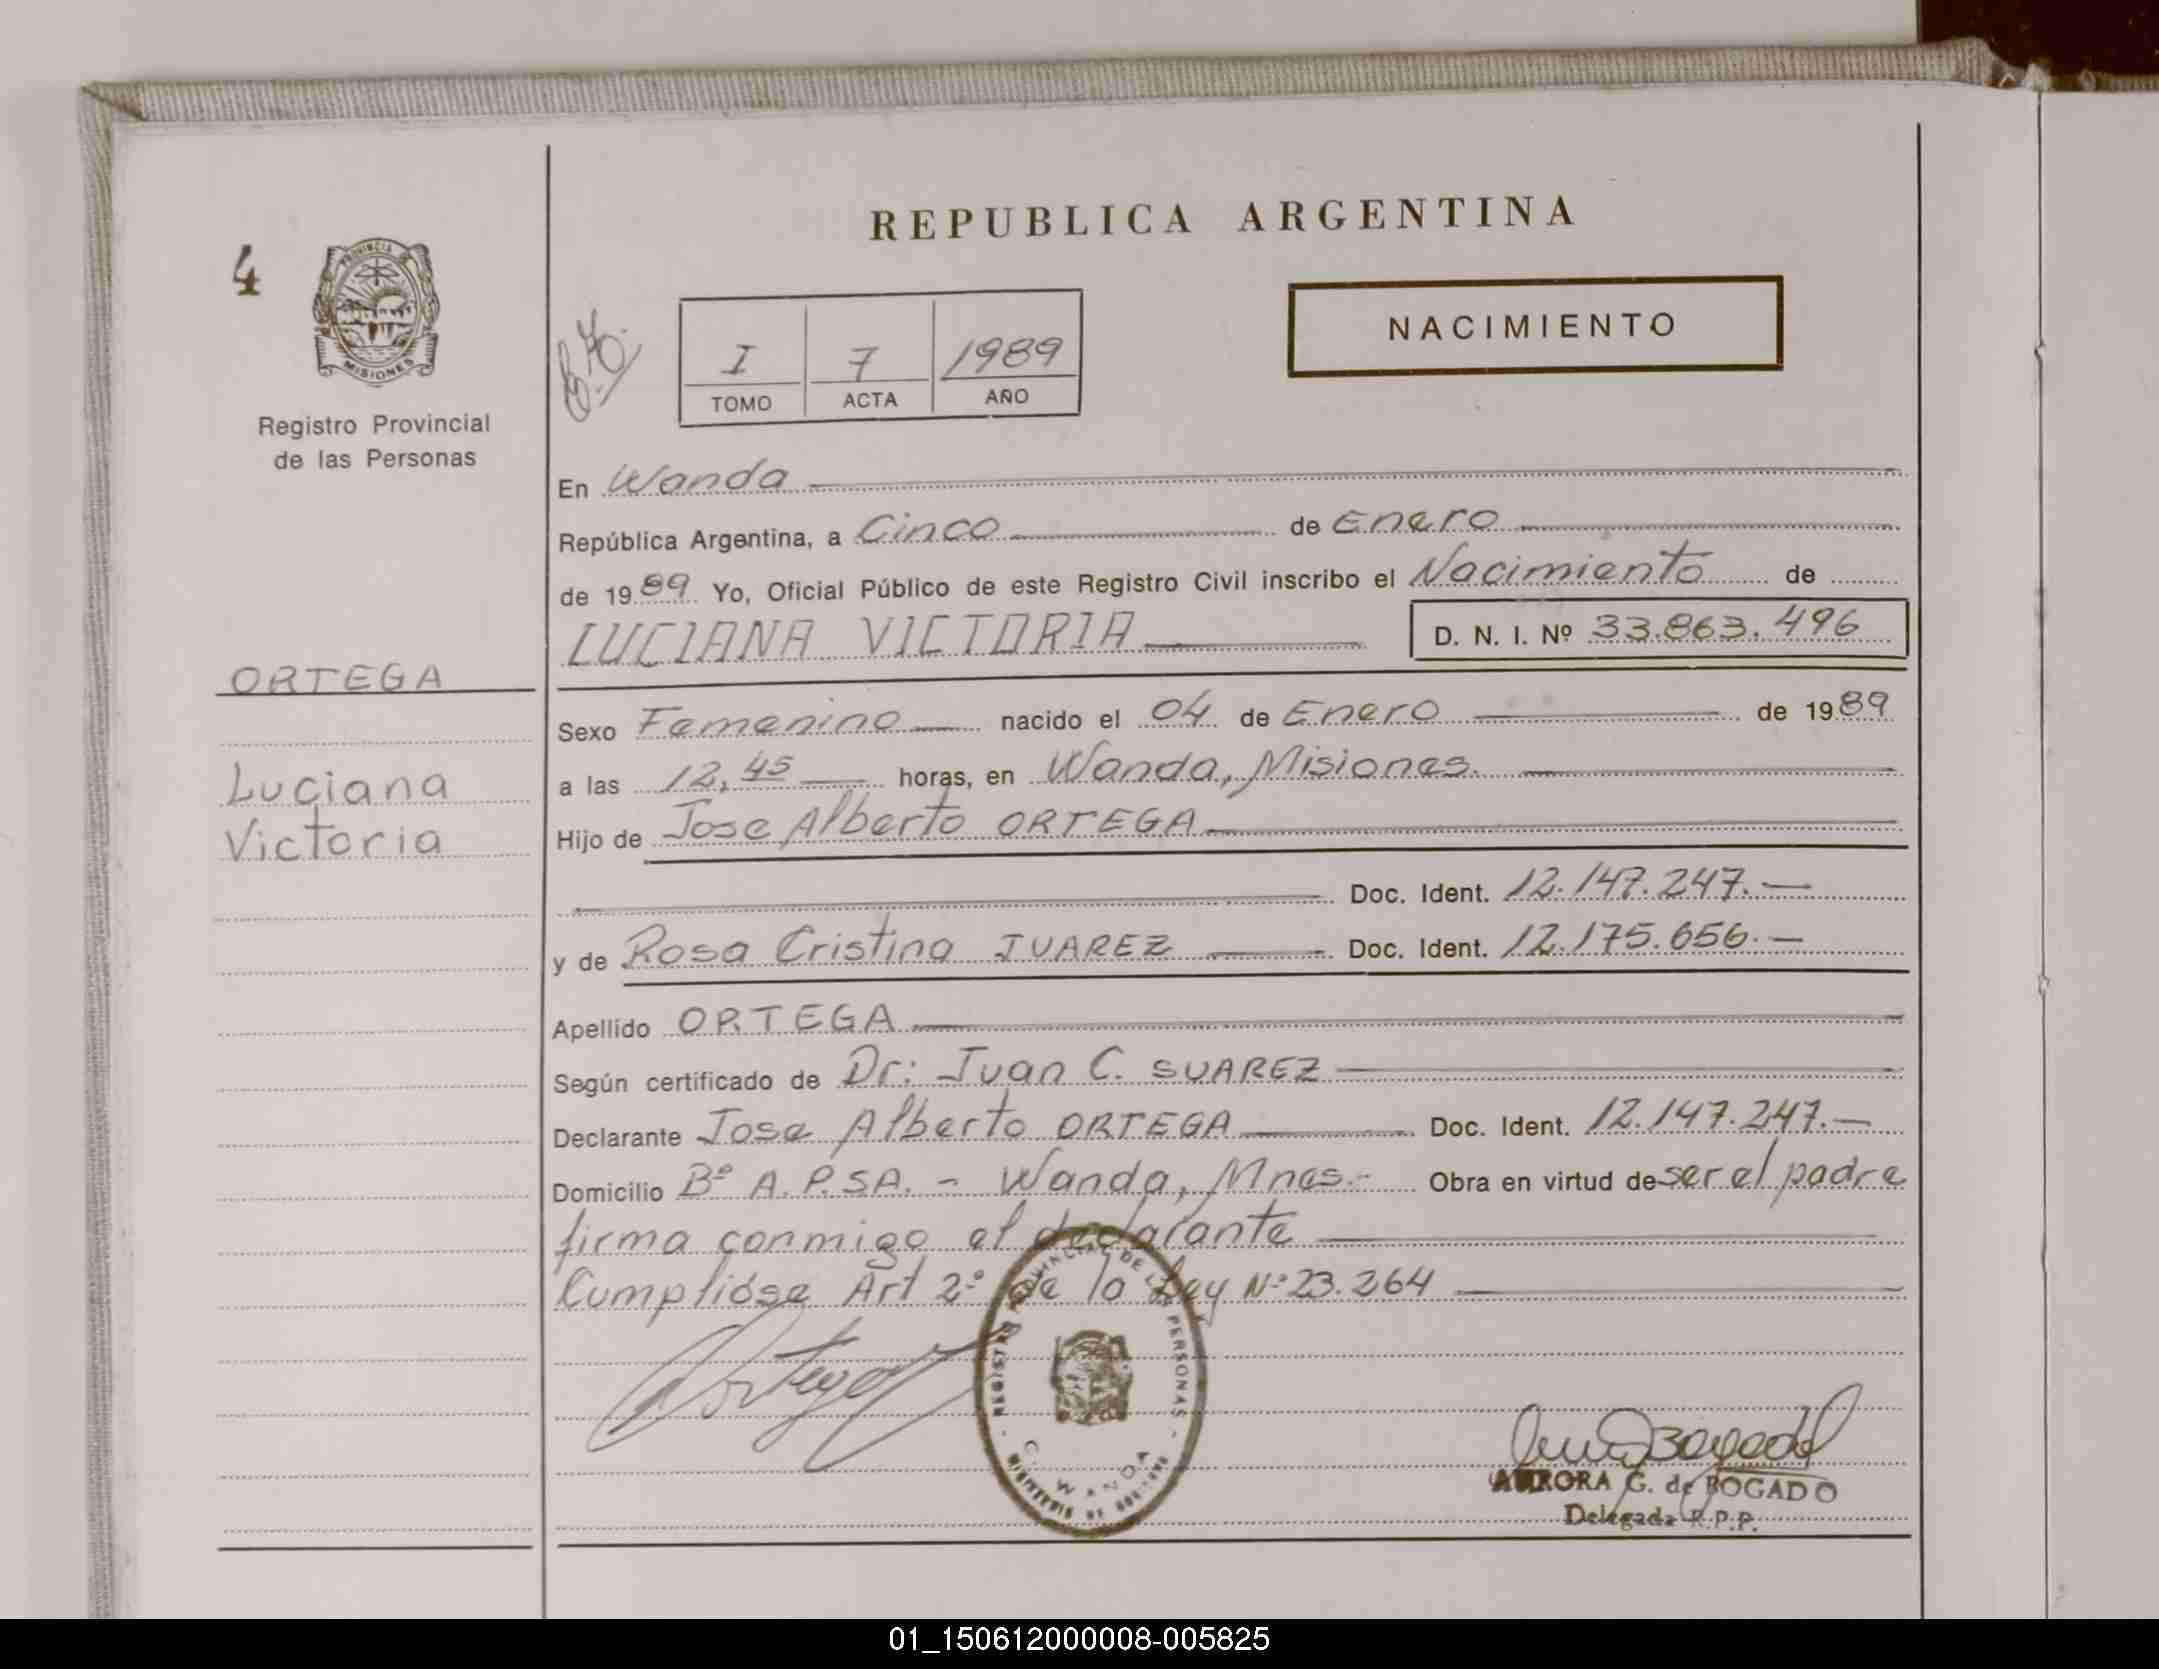 REPUBLICA ARGENTINA
4
PROVINCIA
MISIONES
Registro Provincial
de las Personas
I 7 1989
TOMO ACTA AÑO
NACIMIENTO
En Wanda
República Argentina, a Cinco de Enero
de 1989 Yo, Oficial Público de este Registro Civil inscribo el Nacimiento de
LUCIANA VICTORIA D. N. I. Nº 33.863.496
ORTEGA
Luciana
Victoria
Sexo Femenino nacido el 04 de Enero de 1989
a las 12,45 horas, en Wanda, Misiones.
Hijo de Jose Alberto ORTEGA
Doc. Ident. 12.147.247.-
y de Rosa Cristina JUAREZ Doc. Ident. 12.175.656.-
Apellido ORTEGA
Según certificado de Dr: Juan C. SUAREZ
Declarante Jose Alberto ORTEGA Doc. Ident. 12.147.247.-
Domicilio Bº A.P.SA. - Wanda, Mnes.- Obra en virtud de ser el padre
firma conmigo el declarante
Cumplióse Art 2º de la Ley Nº 23.264
Ortega
REGISTRO PROVINCIAL DE LAS PERSONAS
WANDA
MINISTERIO DE GOBIERNO
AURORA G. de BOGADO
Delegada R.P.P.
01_150612000008-005825